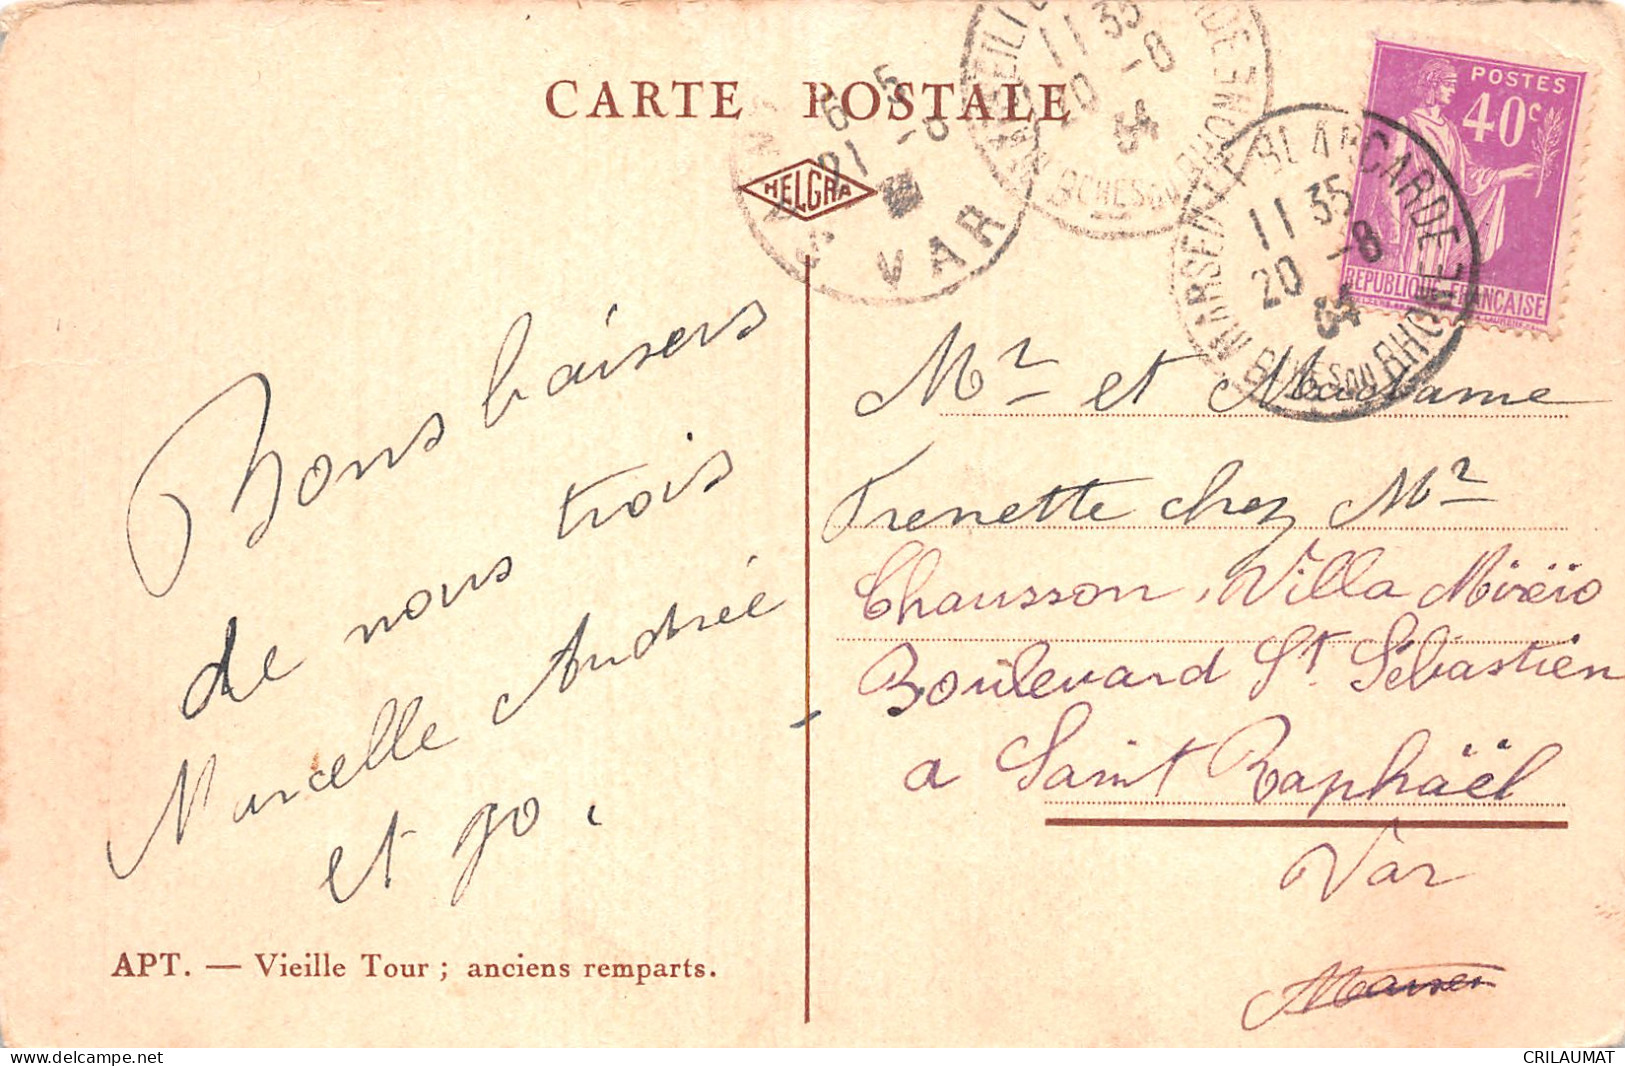 CARTE POSTALE
HELGRA
POSTES
40c
REPUBLIQUE FRANÇAISE
MARSEILLE BLANCARDE
11 35
20 -8
34
BCHES DU RHONE
11 35
20 -8
34
BCHES DU RHONE
21 -8
VAR
Bons baisers
de nous trois
Marcelle Andrée
et Jo.
APT. — Vieille Tour ; anciens remparts.
Mr et Madame
Frenette chez Mr
Chausson, Villa Mireïo
Boulevard St Sébastien
a Saint Raphäël
Var
delcampe.net
CRILAUMAT